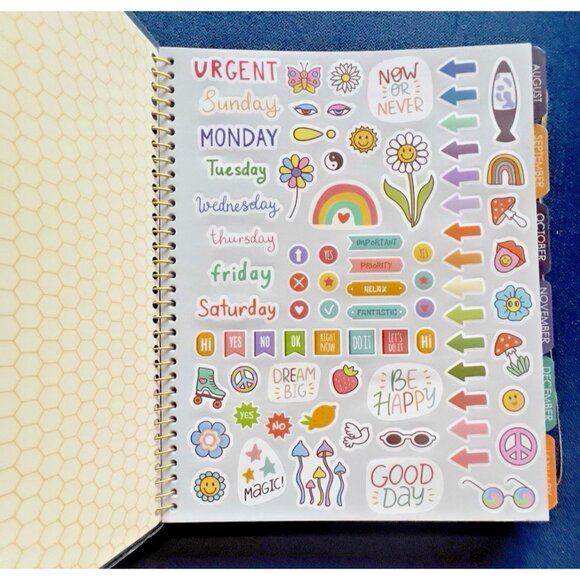 URGENT
Sunday
MONDAY
Tuesday
Wednesday
thursday
friday
Saturday
NOW
OR
NEVER
IMPORTANT
YES
PRIORITY
RELAX
FANTASTIC
YES
Hi
YES
NO
OK
RIGHT
NOW
DO IT
LET'S
DO IT
Hi
DREAM
BIG
BE
HAPPY
YES
NO
MAGIC!
GOOD
DAY
AUGUST
SEPTEMBER
OCTOBER
NOVEMBER
DECEMBER